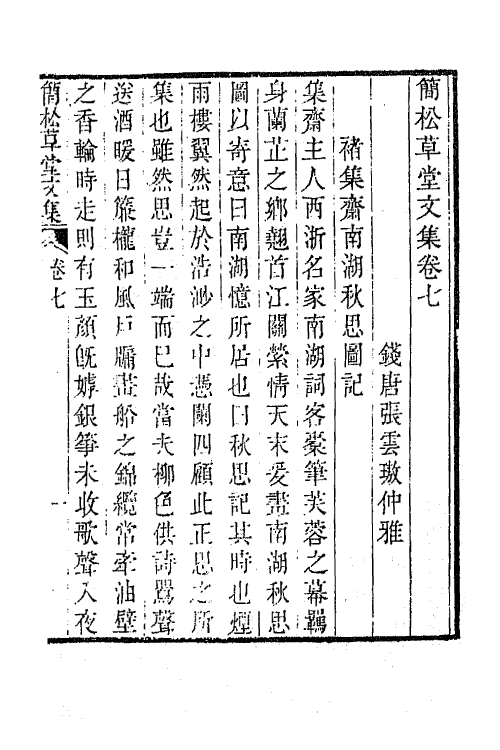 簡松草堂文集卷七
錢唐張雲璈仲雅
褚集齋南湖秋思圖記
集齋主人西浙名家南湖詞客橐筆芙蓉之幕羈
身蘭芷之鄉翹首江關縈情天末爰畫南湖秋思
圖以寄意曰南湖憶所居也曰秋思記其時也煙
雨樓翼然起於浩渺之中憑闌四顧此正思之所
集也雖然思豈一端而已故當夫柳色供詩鶯聲
送酒暖日簾櫳和風戶牖畫船之錦纜常牽油壁
之香輪時走則有玉顏旣嫭銀箏未收歌聲入夜
簡松草堂文集
卷七
一